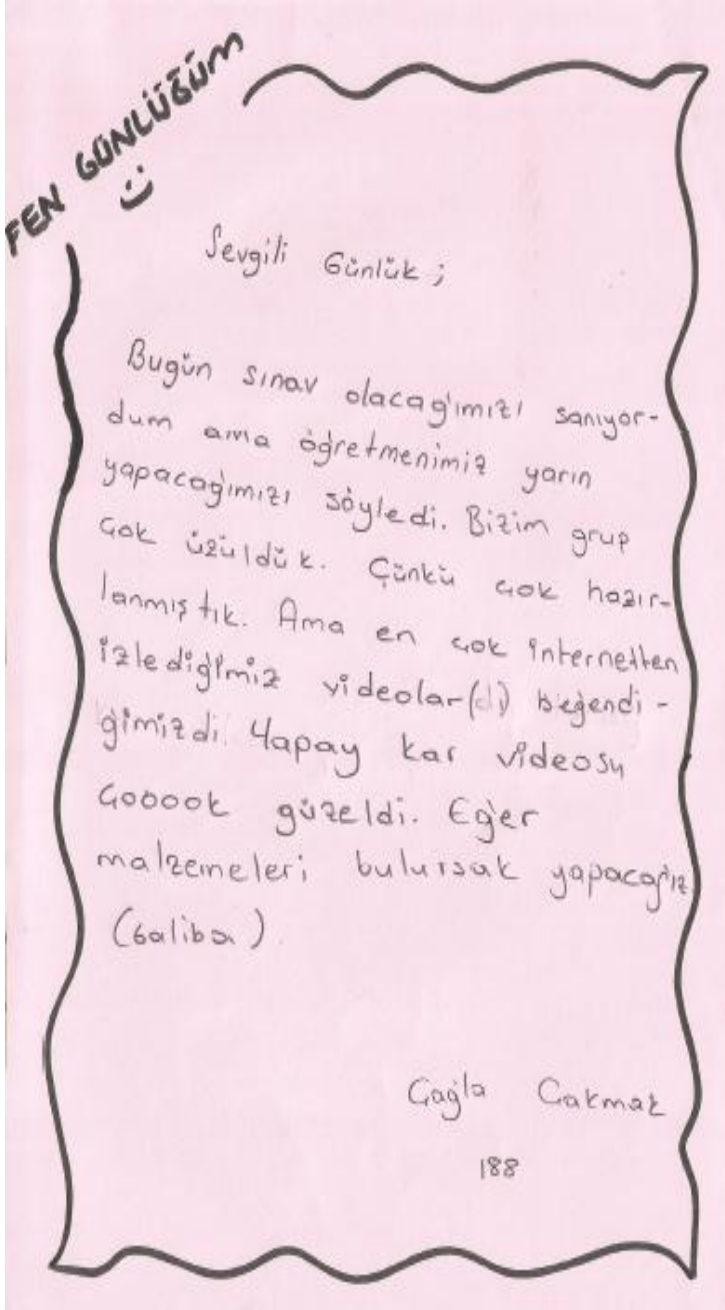 FEN GÜNLÜĞÜM
Sevgili Günlük;
Bugün sınav olacağımızı sanıyor-
dum ama öğretmenimiz yarın
yapacağımızı söyledi. Bizim grup
çok üzüldük. Çünkü çok hazır-
lanmıştık. Ama en çok internetten
izlediğimiz videolar(dı) beğendi-
ğimizdi. Yapay kar videosu
çooook güzeldi. Eğer
malzemeleri bulursak yapacağız
(Galiba).
Çağla Çakmak
188